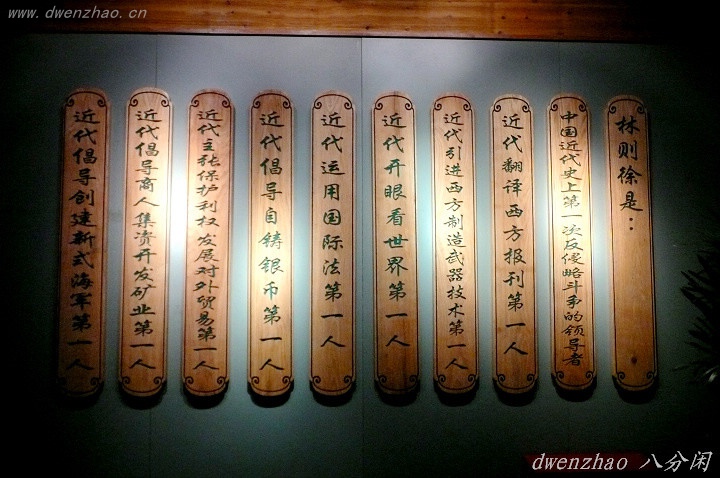 www.dwenzhao.cn
林则徐是：
中国近代史上第一次反侵略斗争的领导者
近代翻译西方报刊第一人
近代引进西方制造武器技术第一人
近代开眼看世界第一人
近代运用国际法第一人
近代倡导自铸银币第一人
近代主张保护利权发展对外贸易第一人
近代倡导商人集资开发矿业第一人
近代倡导创建新式海军第一人
dwenzhao 八分闲